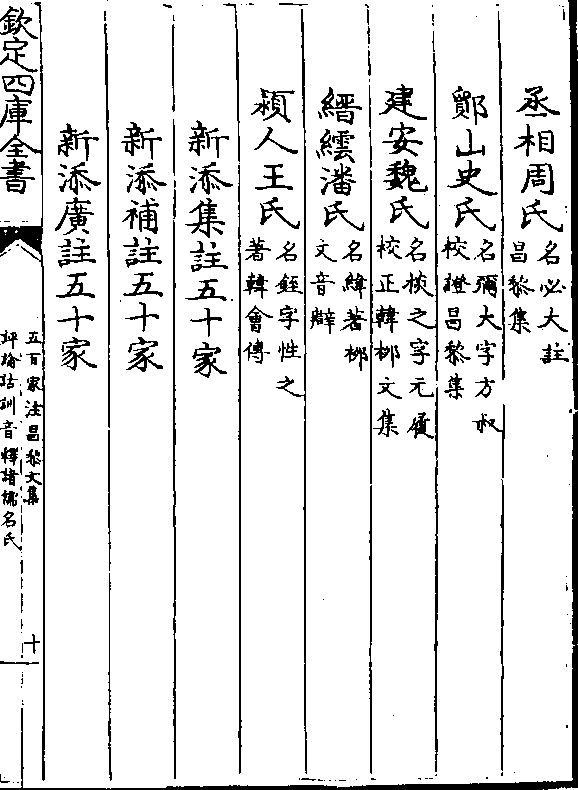 丞相周氏名必大註昌黎集
鄮山史氏名彌大字方叔校證昌黎集
建安魏氏名掞之字元履校正韓栁文集
縉雲潘氏名緯著栁文音辯
潁人王氏名銍字性之著韓會傳
新添集註五十家
新添補註五十家
新添廣註五十家
欽定四庫全書
五百家注昌黎文集
評論詁訓音釋諸儒名氏
十